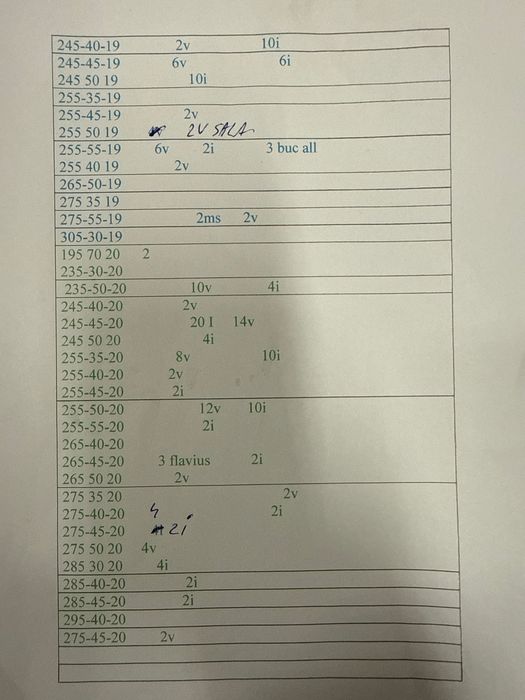 245-40-19 2v 10i
245-45-19 6v 6i
245 50 19 10i
255-35-19
255-45-19 2v
255 50 19 2V SALA
255-55-19 6v 2i 3 buc all
255 40 19 2v
265-50-19
275 35 19
275-55-19 2ms 2v
305-30-19
195 70 20 2
235-30-20
235-50-20 10v 4i
245-40-20 2v
245-45-20 20 I 14v
245 50 20 4i
255-35-20 8v 10i
255-40-20 2v
255-45-20 2i
255-50-20 12v 10i
255-55-20 2i
265-40-20
265-45-20 3 flavius 2i
265 50 20 2v
275 35 20 2v
275-40-20 2i
275-45-20 2i
275 50 20 4v
285 30 20 4i
285-40-20 2i
285-45-20 2i
295-40-20
275-45-20 2v